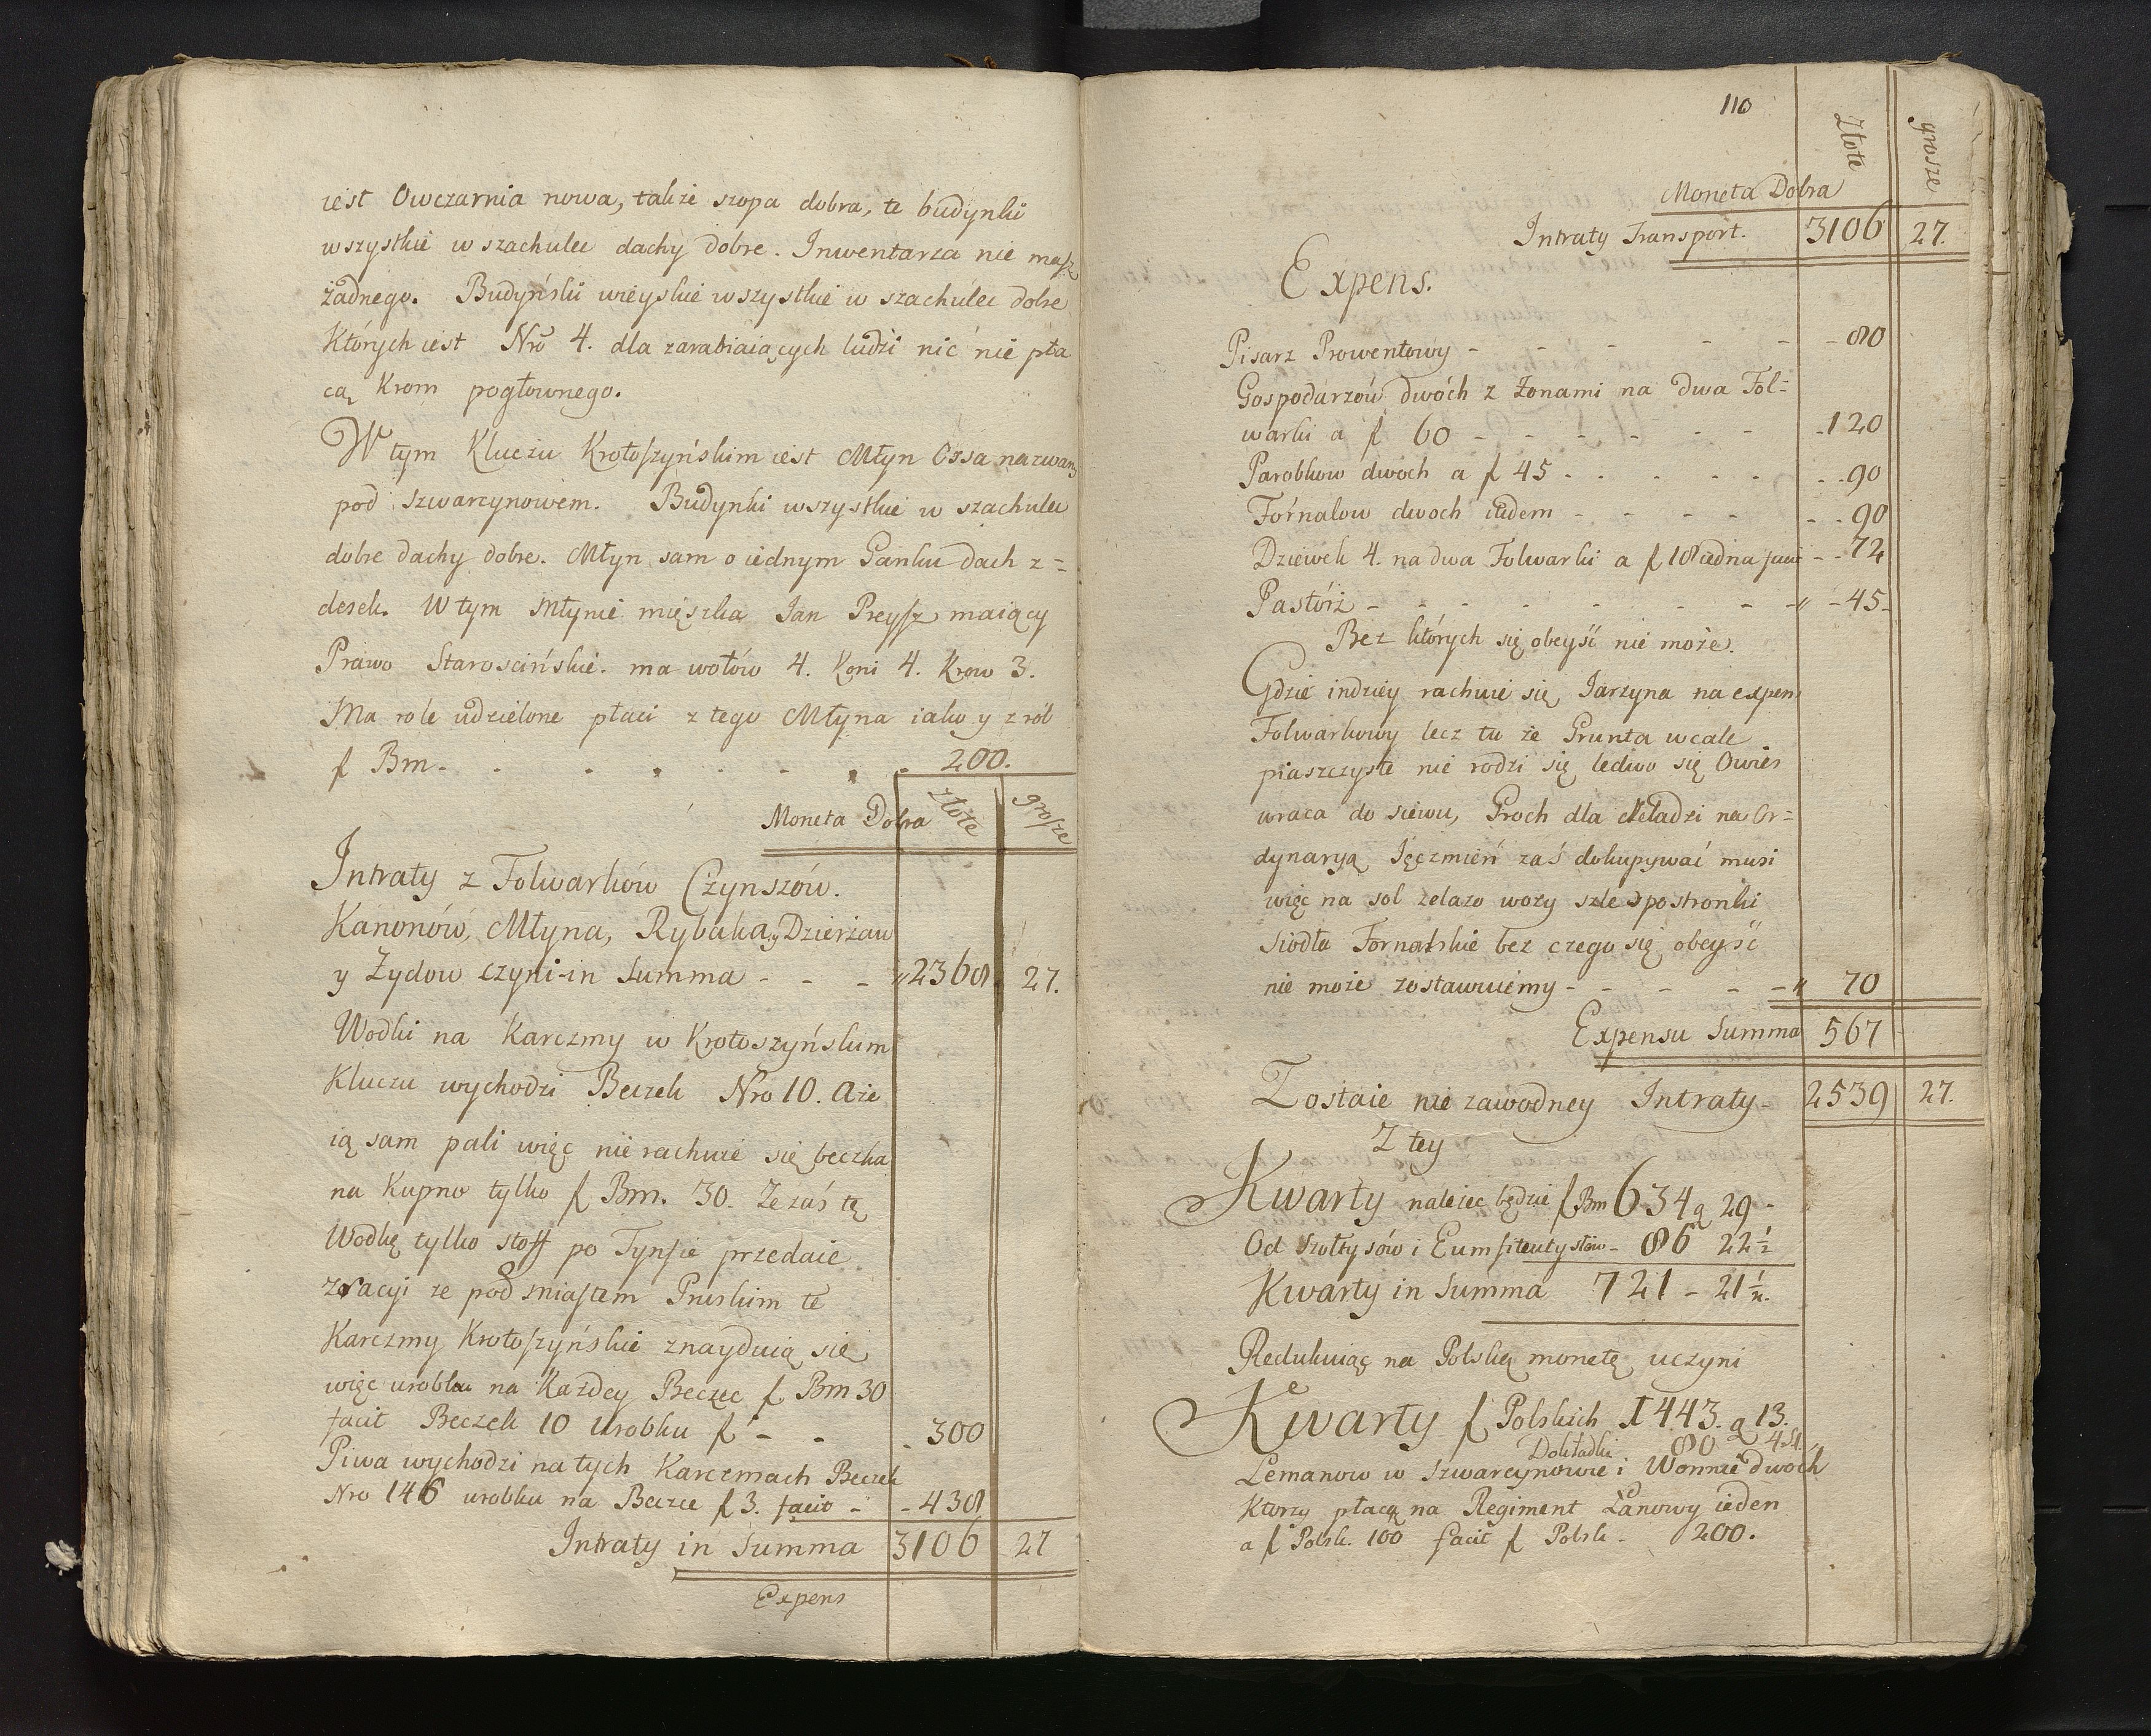 iest Owczarnia nowa, także szopa dobra, te budynki
wszystkie w szachulec dachy dobre. Inwentarza nie masz
żadnego. Budyński wieyskie wszystkie w szachulec dobre
Których iest Nro 4. dla zarabiaiących ludzi nic nie pła
cą Krom pogłownego.
W tym Kluczu Krotoszyńskim iest Młyn Ossa nazwany
pod Szwarcynowem. Budynki wszystkie w szachulec
dobre dachy dobre. Młyn sam o iednym Ganku dach z=
desek. W tym Młynie mięszka Jan Preysz maiący
Prawo Starościńskie. ma wołów 4. Koni 4. Krow 3.
Ma role udzielone płaci z tego Młyna iako y z ról
f Bm - - - - - - - 200.
Moneta Dobra złote grosze
Intraty z Folwarków Czynszów.
Kanonów, Młyna, Rybaka, y Dzierżaw
y Zydow czyni in Summa - - - 2368 27.
Wodki na Karczmy w Krotoszyńskim
Kluczu wychodzi Beczek Nro 10. a że
ią sam pali więc nie rachuie się beczka
na Kupno tylko f Bm. 30. Ze zaś tę
Wodkę tylko stoff po Tynfie przedaie
z racyi ze pod miastem Pruskim te
Karczmy Krotoszyńskie znayduią się
więc urobku na Każdey Beczce f Bm 30
facit Beczek 10 Urobku f - - - 300
Piwa wychodzi na tych Karczmach Beczek
Nro 146 urobku na Beczce f 3. facit - - 438
Intraty in Summa 3106 27
Expens
110
Złote grosze
Moneta Dobra
Intraty Transport. 3106 27.
Expens.
Pisarz Prowentowy - - - - - - 80
Gospodarzów dwóch z Żonami na dwa Fol=
warki a f 60 - - - - - - - 120
Parobkow dwoch a f 45 - - - - - - 90
Fórnalow dwoch itidem - - - - - - 90
Dziewek 4. na dwa Folwarki a f 18 iedna - - 72
Pastórz - - - - - - - - 45 -
Bez których się obeyść nie może.
Gdzie indziey rachuie się Jarzyna na expens
Folwarkowy lecz tu że Grunta wcale
piaszczyste nie rodzi się ledwo się Owies
wraca do siewu, Groch dla Czeladzi na Or=
dynaryą Jęczmień zaś dokupywać musi
więc na sol zelazo wozy szle postronki
Siodła Fornalskie bez czego się obeyść
nie może zostawuiemy - - - - - 70
Expensu Summa 567
Zostaie nie zawodney Intraty - 2539 27.
Z tey
Kwarty należec będzie f Bm 634 g 29 -
Od Szołtysów i Eumfiteutystów - 86 22½
Kwarty in Summa 721 - 21½.
Redukuiąc na Polską monetę uczyni
Kwarty f Polskich 1443. g 13.
Dokładki 80
Lemanow w Szwarcynowie i Wonnie dwoch
Ktorzy płacą na Regiment Łanowy ieden
a f Polsk. 100 facit f Polsk - 200.